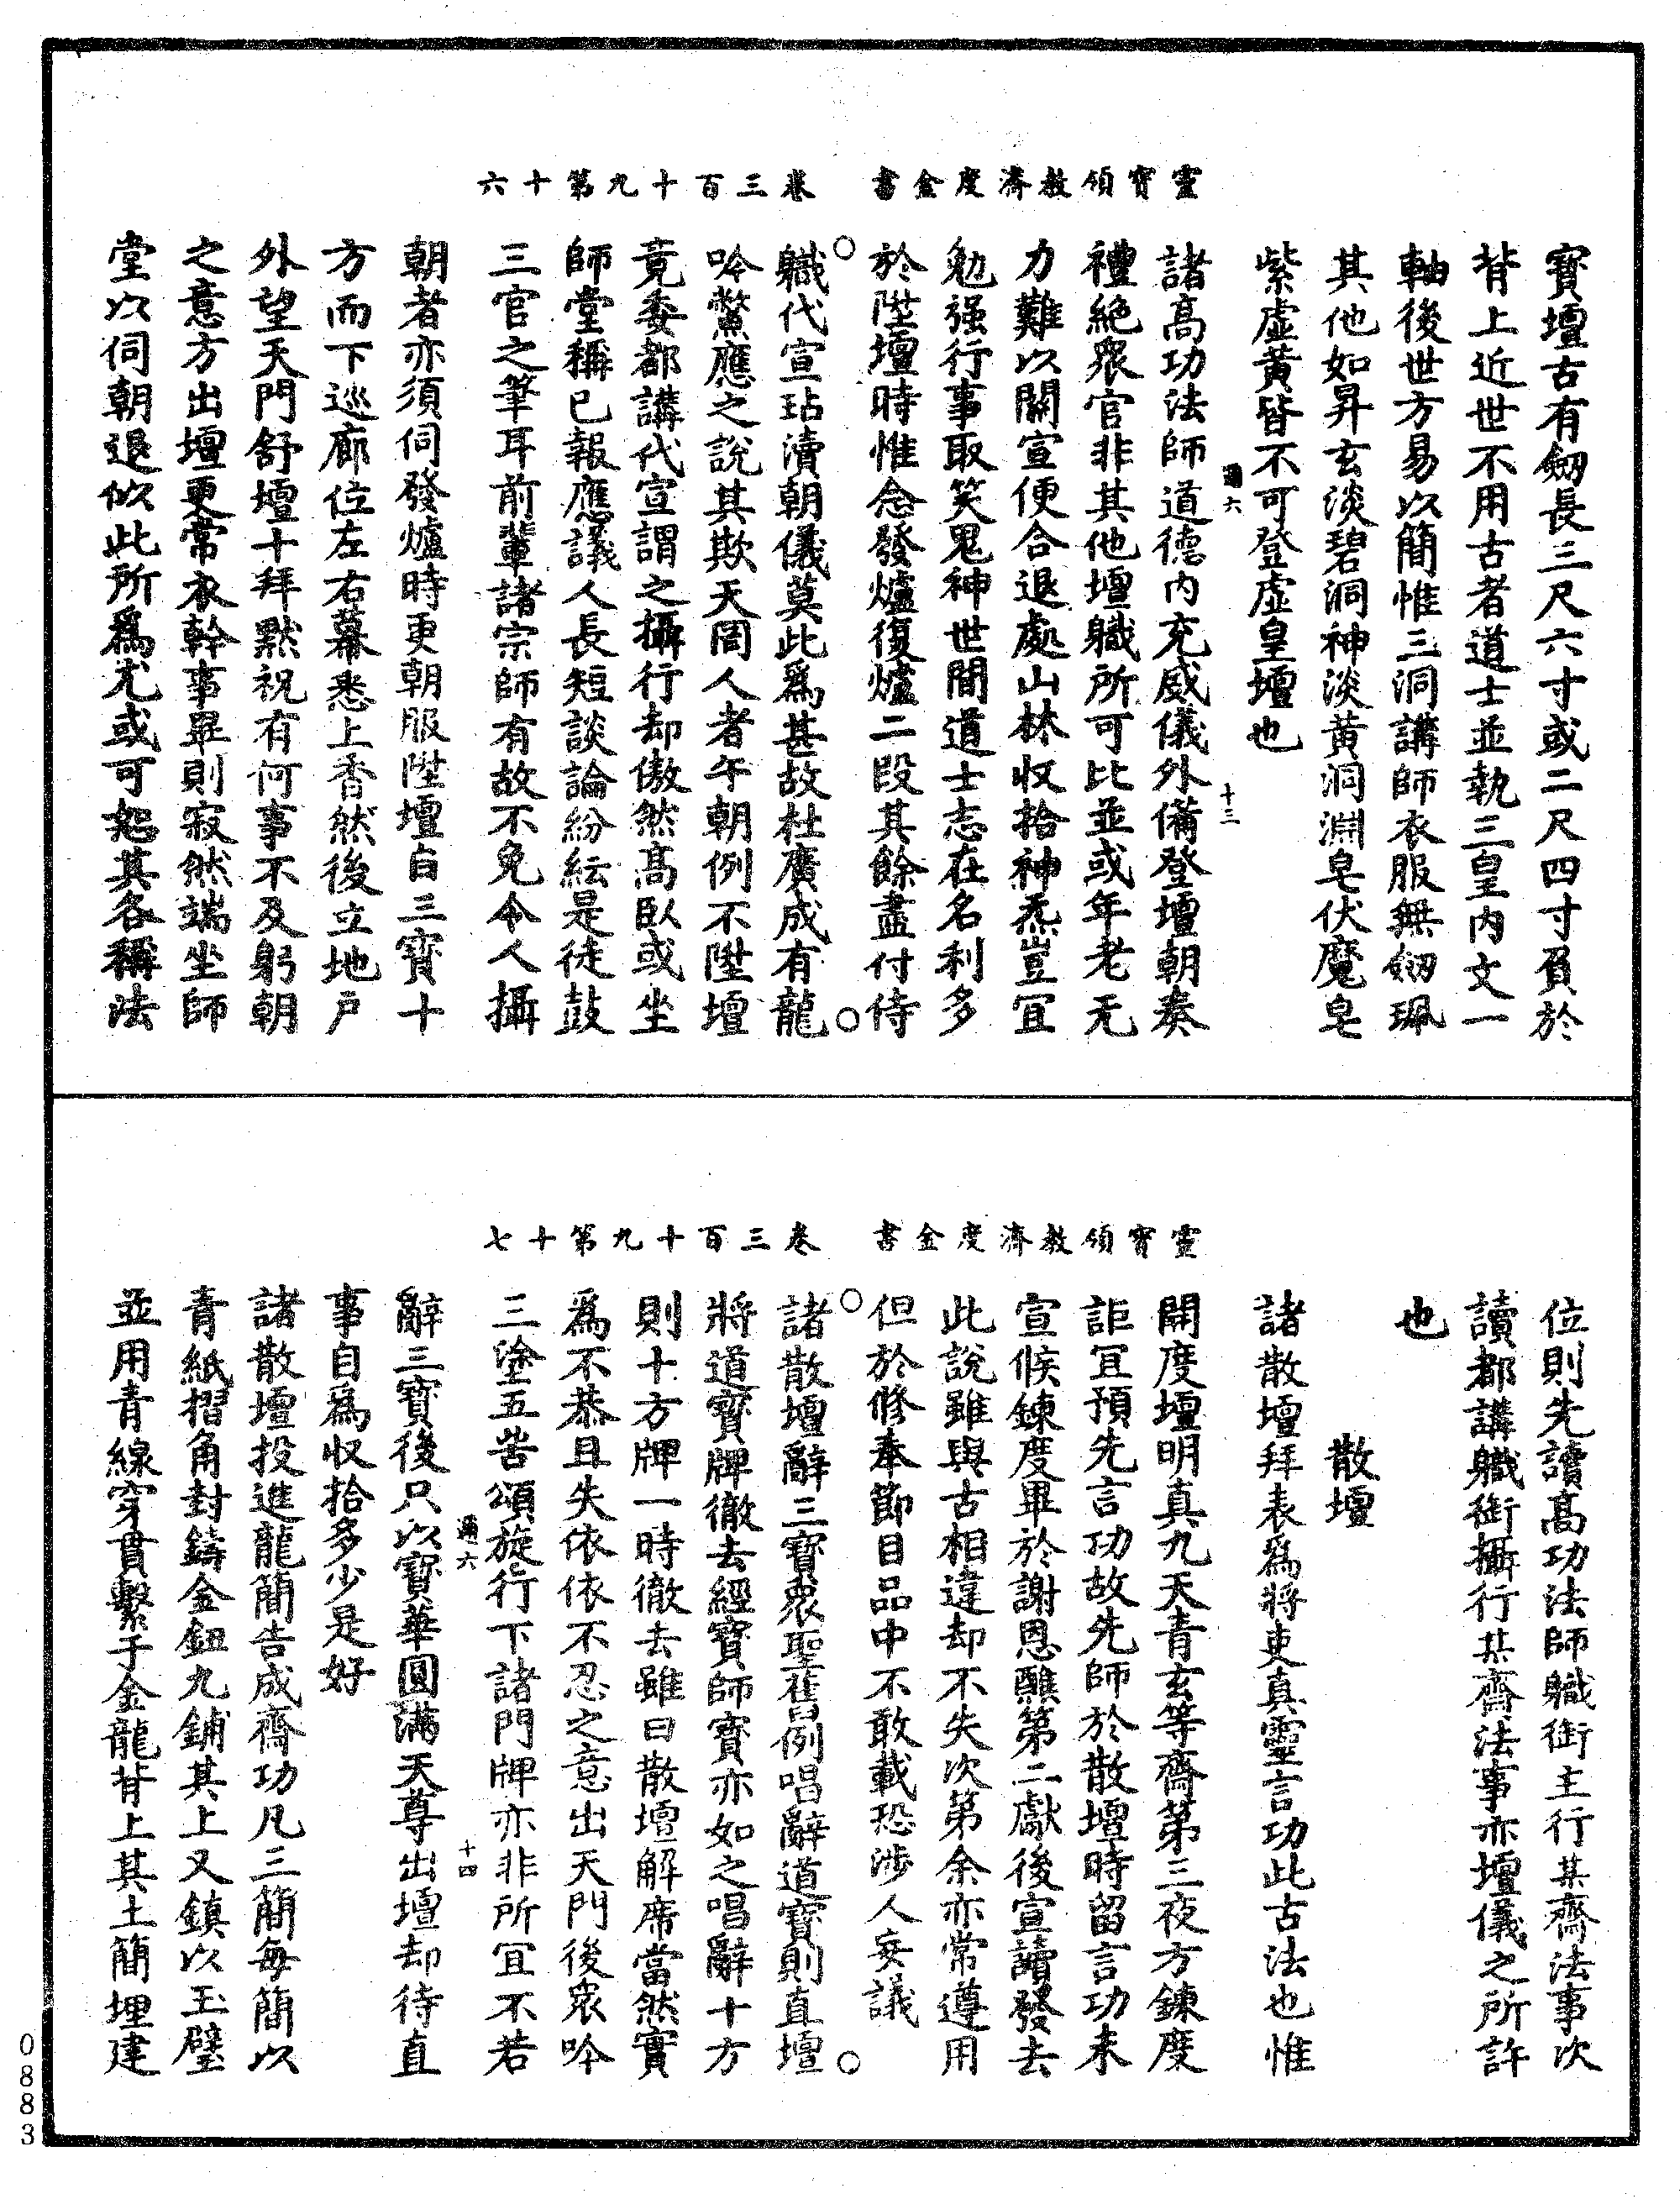 靈寶領教濟度金書　卷三百十九第十六
寶壇古有劒長三尺六寸或二尺四寸負於
背上近世不用古者道士並執三皇內文一
軸後世方易以簡惟三洞講師衣服無劒珮
其他如昇玄淡碧洞神淡黃洞淵皂伏魔皂
紫虛黃皆不可登虛皇壇也
諸高功法師道德內充威儀外備登壇朝奏
禮絶衆官非其他壇職所可比並或年老无
力難以關宣便合退處山林収拾神炁豈冝
勉强行事取笑鬼神世間道士志在名利多
於陞壇時惟念發爐復爐二段其餘盡付侍
職代宣玷瀆朝儀莫此爲甚故杜廣成有龍
吟鱉應之說其欺天罔人者午朝例不陞壇
竟委都講代宣謂之攝行却傲然高臥或坐
師堂稱已報應議人長短談論紛紜是徒鼓
三官之筆耳前輩諸宗師有故不免令人攝
朝者亦須伺發爐時更朝服陞壇白三寶十
方而下巡廊位左右幕悉上香然後立地戶
外望天門舒壇十拜黙祝有何事不及躬朝
之意方出壇更常衣幹事畢則寂然端坐師
堂以伺朝退似此所爲尤或可恕其各稱法
彌六
十三
靈寶領教濟度金書　卷三百十九第十七
位則先讀高功法師職銜主行某齋法事次
讀都講職銜攝行某齋法事亦壇儀之所許
也
散壇
諸散壇拜表爲將吏真靈言功此古法也惟
開度壇明真九天青玄等齋第三夜方鍊度
詎冝預先言功故先師於散壇時留言功未
宣候鍊度畢於謝恩醮第二獻後宣讀發去
此說雖與古相違却不失次第余亦常遵用
但於修奉節目品中不敢載恐涉人妄議
諸散壇辭三寶衆聖舊例唱辭道寶則直壇
將道寶牌徹去經寶師寶亦如之唱辭十方
則十方牌一時徹去雖曰散壇解席當然實
爲不恭且失依依不忍之意出天門後衆吟
三塗五苦頌旋行下諸門牌亦非所冝不若
辭三寶後只以寶華圓滿天尊出壇却待直
事自爲収拾多少是好
諸散壇投進龍簡告成齋功凡三簡每簡以
青紙摺角封鑄金鈕九鋪其上又鎮以玉璧
並用青線穿貫繫于金龍背上其土簡埋建
彌六
十四
0883